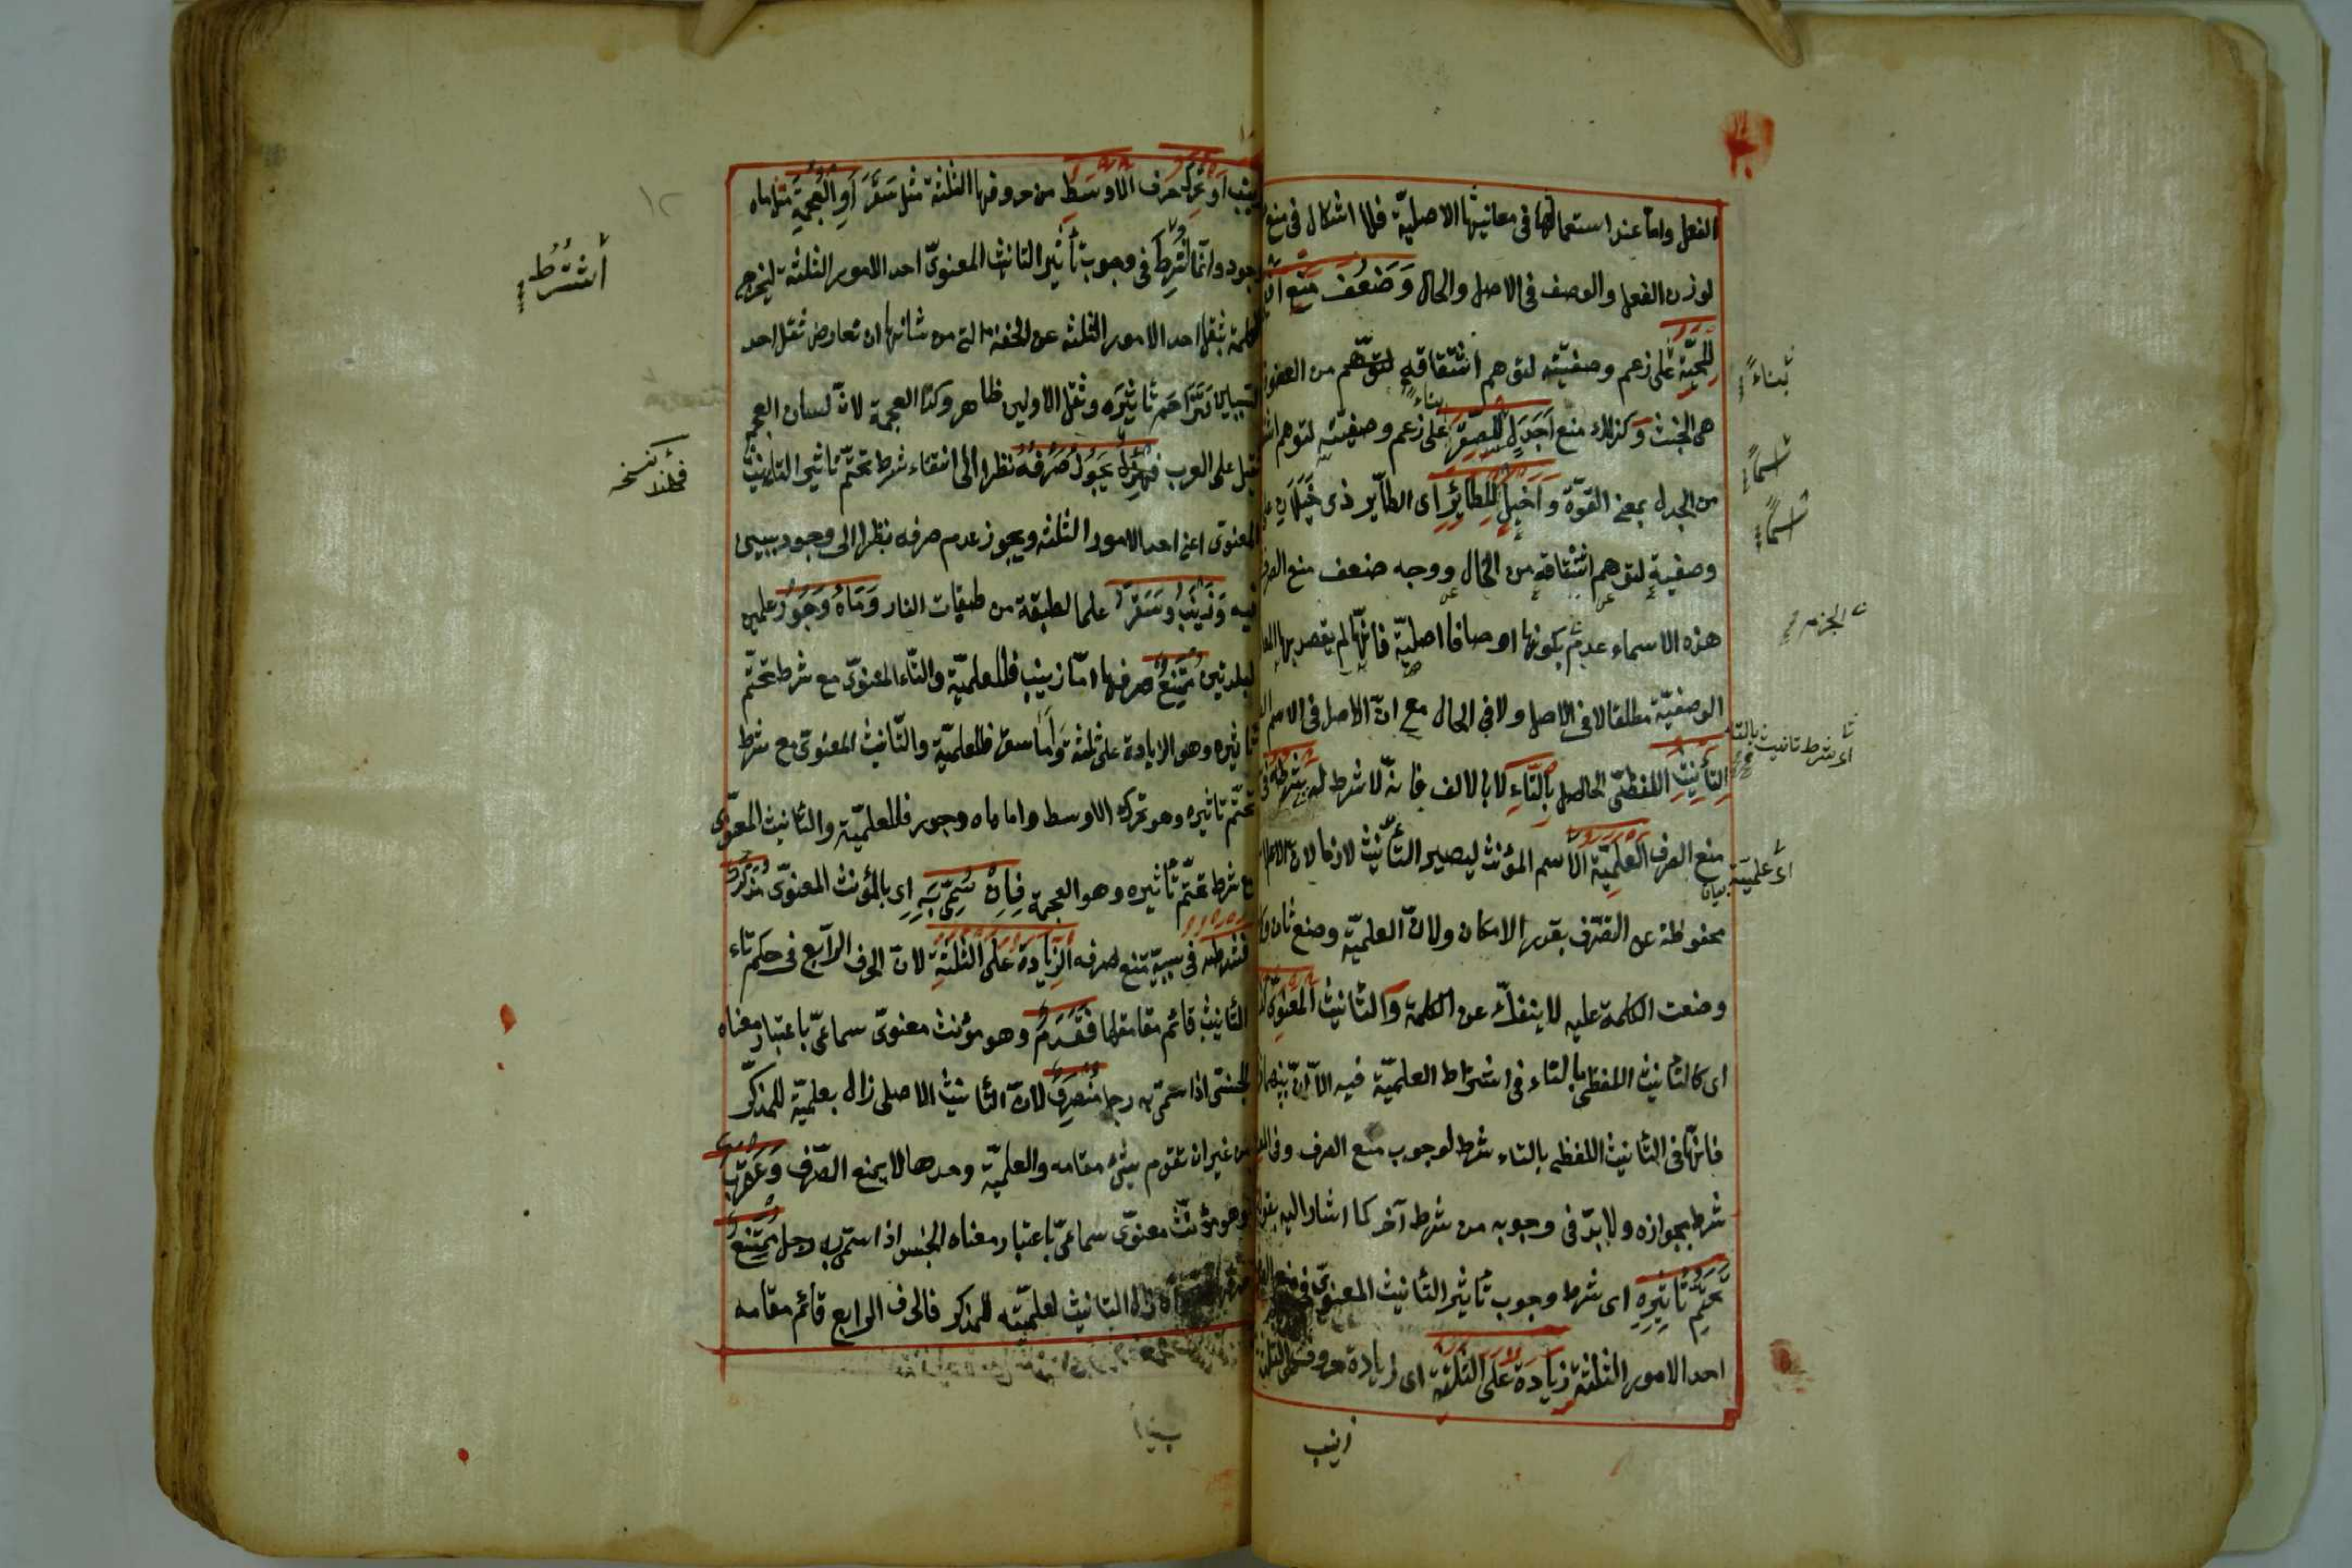 الفعل واما عند استعمالها في معانيها الاصليّة فلا اشكال في منع
لوزن الفعل والوصف في الاصل والحال وَضَعُفَ مَنْعُ
للحيّة على زعم وصفيّته لتوهم اشتقاقه من
هى الخبث وكذلك منع اَجْدَلٍ للصقر على زعم وصفيته لتوهم
من الجدل بمعنى القوّة وَاَخْيَلٍ لِلطَّائِرِ اى الطاير ذى خَيَلَانٍ
وصفيةٍ لتوهم اشتقاقه من الخال ووجه ضعف منع
هذه الاسماء عدم بكونها اوصافا اصليّة فانّها لم يقصد بها
الوصفيّة مطلقا لا فى الاصل ولا فى الحال مع انّ الاصل فى الاسم
التأنيث اللفظىّ الحاصل بِالتّاءِ لا بالالف فانّه لا شرط له شرطه فى
منع الصرف العلميّة الاسم المؤنث ليصير التأنيث لازما لانّ
محفوظة عن التصرّف بقدر الامكان ولانّ العلميّة وضع ثان
وضعت الكلمة عليه لا ينفكّ عن الكلمة والتانيث المعنوىّ
اى كالتانيث اللفظى بالتاء فى اشتراط العلميّة فيه الّا انّ بينهما
فانّها فى التانيث اللفظى بالتاء شرط لوجوب منع الصرف وفى
شرط بجوازه ولا بدّ فى وجوبه من شرط آخر كما اشار اليه
تَحَتُّمِ تَاْثِيْرِهِ اى شرط وجوب تاثير التأنيث المعنوىّ فى
احد الامور الثلثة زيادة على الثلثة اى زيادة حروف على الثلثة
زينب
بناءً
اسماً
اسماً
الجزم
اى شرط تانيث بالتاء
اى علميّة
زينب اَوْ تحرّك حرف الاوسط من حروفها الثلثة مثل سَقَرَ اَوِ الْعُجْمَةِ مثل ماه
وجود وانّما اشترط فى وجوب تأثير التانيث المعنوىّ احد الامور الثلثة ليخرج
الكلمة بثقل احد الامور الثلثة عن الخفة التى من شانها ان تعارض ثقل احد
السببين فتزاحم تاثيره وثقل الاولين ظاهر وكذا العجمة لانّ لسان العجم
ثقيل على العرب فهند يجوز صرفه نظرا الى انتفاء شرط تحتّم تاثير التأنيث
المعنوى اعنى احد الامور الثلثة ويجوز عدم صرفه نظرا الى وجود سببين
فيه وَزَيْنَبُ وَسَقَرُ علما لطبقة من طبقات النار وَمَاهُ وَجَوْرُ علمين
لبلدتين مُمْتَنِعٌ صرفها امّا زينب فللعلميّة والتّاء المعنوىّ مع شرط تحتّم
تاثيره وهو الزيادة على ثلثة وَاَمّا سقر فللعلميّة والتّانيث المعنوى مع شرط
تحتّم تاثيره وهو تحرك الاوسط واما ماه وجور فللعلميّة والتّانيث المعنوى
مع شرط تحتّم تأثيره وهو العجمة فَاِنْ سُمِّىَ بِهِ اى بالمؤنث المعنوىّ مُذَكَّرٌ
فشرطه فى سببيّة منع صرفه الزِّيَادَةُ عَلَى الثَّلَثَةِ لانّ الحرف الرّابع فى حكم تاء
التأنيث قائم مقامها فَقَدَمٌ وهو مؤنث معنوىّ سماعىّ باعتبار معناه
الجنسى اذا سمّى به رجل مُنْصَرِفٌ لانّ التأنيث الاصلى زال بعلميّة للمذكّر
من غير ان تقوم شئ مقامه والعلميّة وحدها لا يمنع الصّرف وَعَقْرَبُ
وهو مؤنّث معنوىّ سماعىّ باعتبار معناه الجنس اذا سمّى به رجل مُمْتَنِعٌ
التانيث لعلميّته للمذكر فالحرف الرابع قائم مقامه
اشتُرِطَ
١٢
فحينئذ نسخه